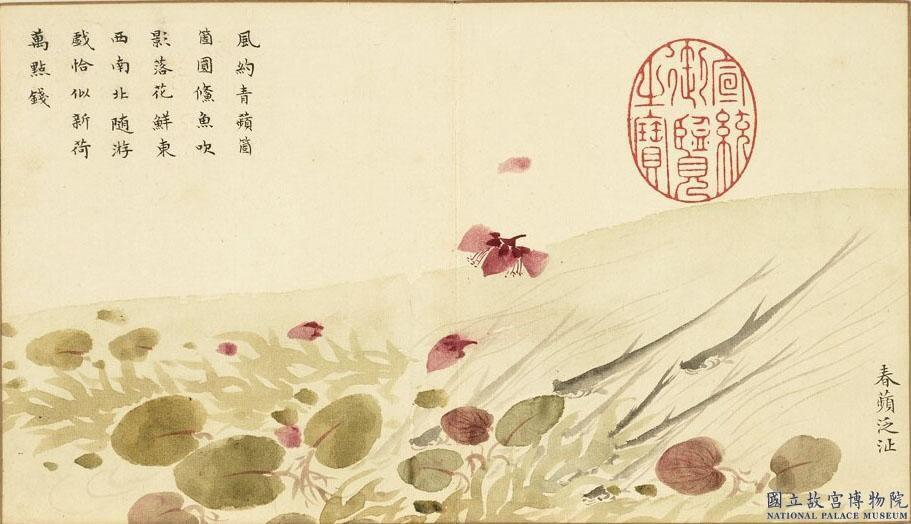 春蘋泛沚
宣統
御覽
之寶
風約青蘋箇
箇圓鯈魚吹
影落花鮮東
西南北隨游
戲恰似新荷
萬點錢
國立故宮博物院
NATIONAL PALACE MUSEUM